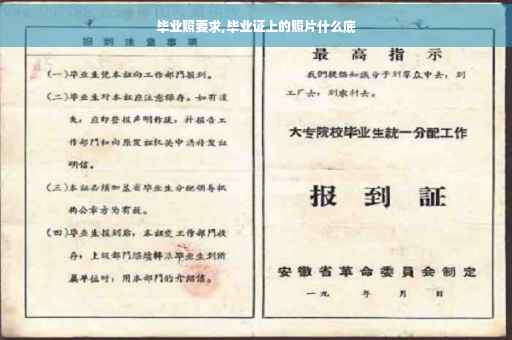 毕业照要求,毕业证上的照片什么底
报到注意事项
(一)毕业生凭本证向工作部门报到。
(二)毕业生对本证应注意保存。如有遗
失,应即登报声明作废,并报告工
作部门和向原发证机关申请补发证
明信。
(三)本证必须加盖省毕业生分配领导机
构公章方为有效。
(四)毕业生报到后,本证交工作部门收
存;上级部门继续转派毕业生到所
属单位时,用本部门的介绍信。
最高指示
我们提倡知识分子到群众中去,到
工厂去,到农村去。
大专院校毕业生統一分配工作
报到証
安徽省革命委員会制定
一九 年 月 日